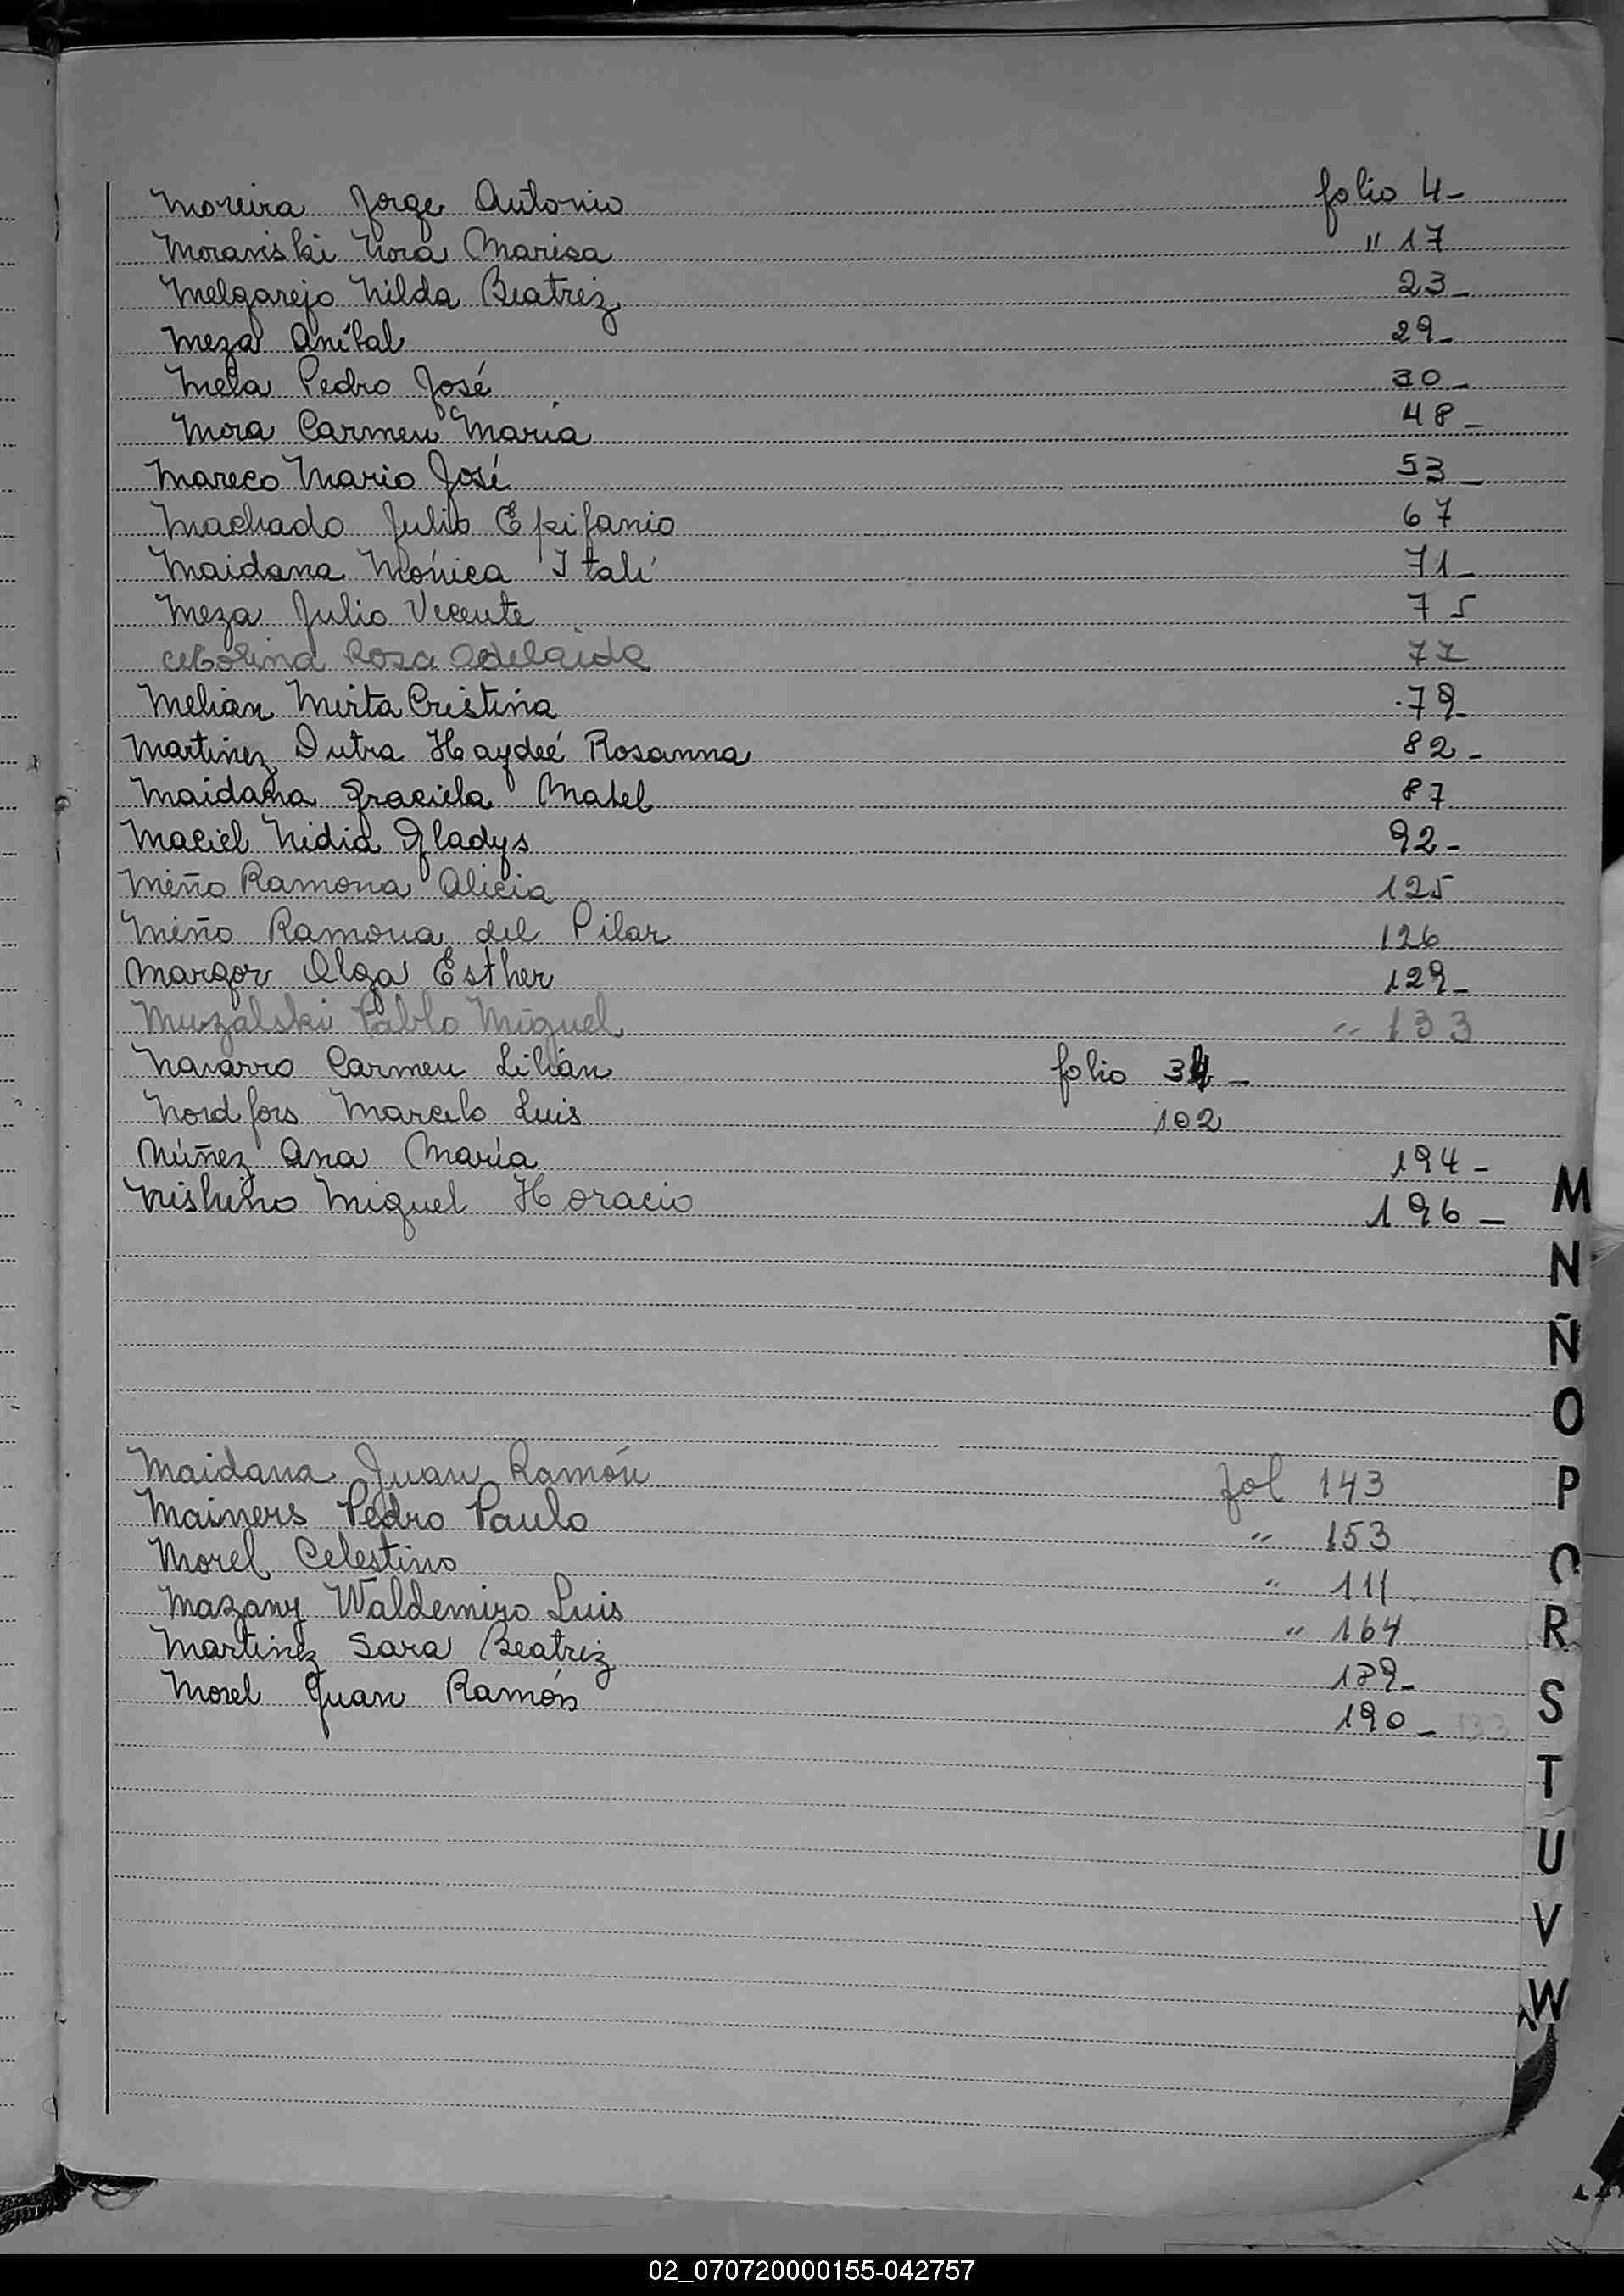 Moreira Jorge Antonio folio 4-
Moraviski Nora Marisa " 17
Melgarejo Nilda Beatriz 23-
Meza Aníbal 29-
Mela Pedro José 30-
Mora Carmen María 48-
Mareco Mario José 53-
Machado Julio Epifanio 67
Maidana Mónica Itatí 71-
Meza Julio Vicente 75
Molina Rosa Adelaida 77
Melian Mirta Cristina 79-
Martinez Dutra Haydeé Rosanna 82-
Maidana Graciela Mabel 87
Maciel Nidia Gladys 92-
Miño Ramona Alicia 125
Miño Ramona del Pilar 126
Margor Olga Esther 129-
Muzalski Pablo Miguel " 133
Navarro Carmen Lilián folio 34-
Nordfors Marcelo Luis 102
Núñez Ana María 194-
Nishino Miguel Horacio 196-
M
N
Ñ
O
Maidana Juan Ramón fol 143
P
Mainers Pedro Paulo " 153
Morel Celestino " 111
Mazany Waldemiro Luis " 164
R
Martinez Sara Beatriz
Morel Juan Ramón 190- 133
S
T
U
V
W
02_070720000155-042757